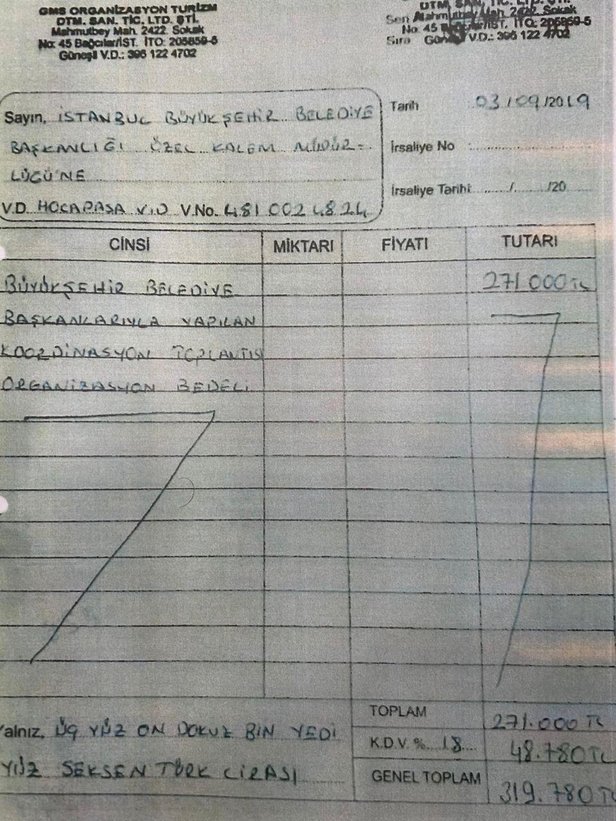 GMS ORGANİZASYON TURİZM
DTM. SAN. TİC. LTD. ŞTİ.
Mahmutbey Mah. 2422. Sokak
No: 45 Bağcılar/İST. İTO: 205859-5
Güneşli V.D.: 396 122 4702
DTM. SAN. TİC. LTD. ŞTİ.
Seri Mahmutbey Mah. 2422. Sokak
No: 45 İTO: 205859-5
Sıra V.D.: 396 122 4702
Sayın, İSTANBUL BÜYÜKŞEHİR BELEDİYE
BAŞKANLIĞI ÖZEL KALEM MÜDÜR-
LÜĞÜ'NE
V.D. HOCAPAŞA V.D V.No. 481 002 4824
Tarih 03/09/2019
İrsaliye No :
İrsaliye Tarihi: / /20
CİNSİ MİKTARI FİYATI TUTARI
BÜYÜKŞEHİR BELEDİYE 271.000TL
BAŞKANLARIYLA YAPILAN
KOORDİNASYON TOPLANTISI
ORGANİZASYON BEDELİ
Yalnız, ÜÇ YÜZ ON DOKUZ BİN YEDİ
YÜZ SEKSEN TÜRK LİRASI
TOPLAM 271.000 TL
K.D.V. % 18 48.780TL
GENEL TOPLAM 319.780 TL